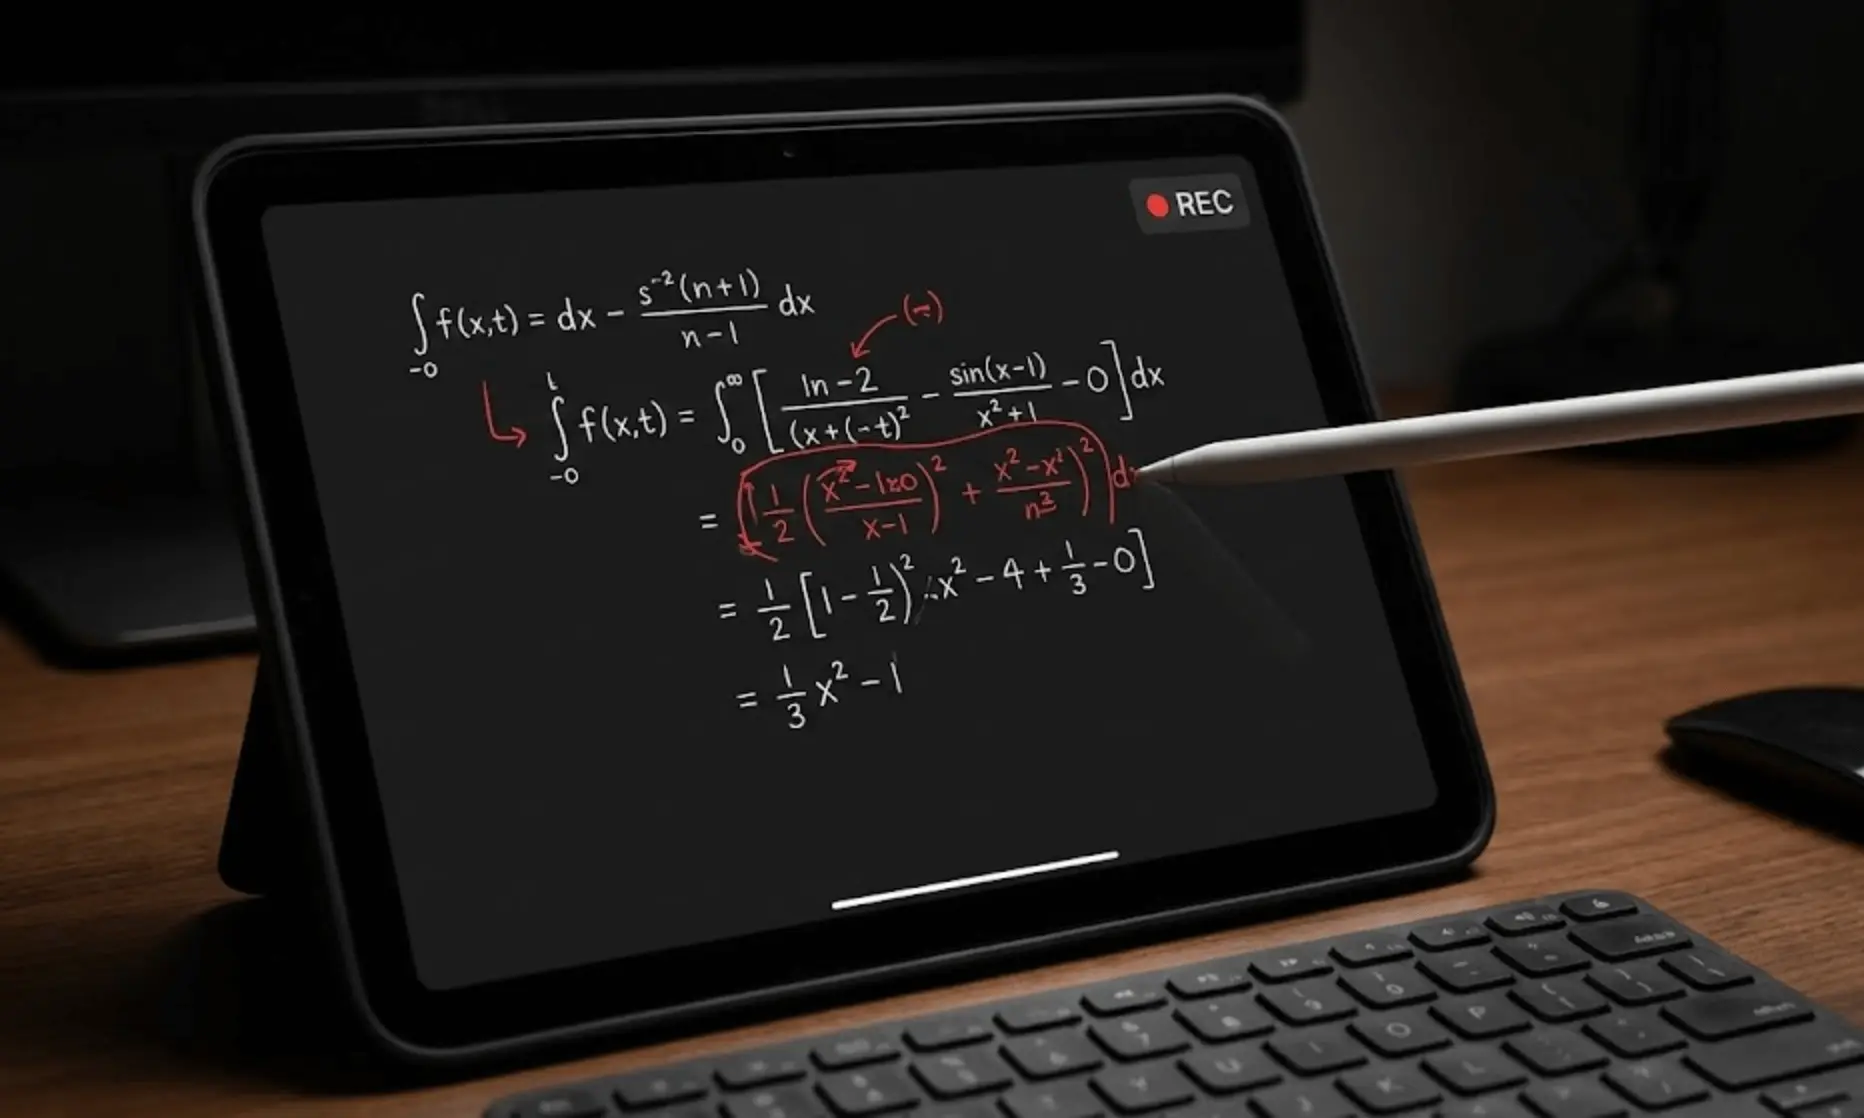 REC
∫_{-0} f(x,t) = dx - \frac{s^{-2}(n+1)}{n-1} dx
(÷)
∫_{-0}^{t} f(x,t) = ∫_0^∞ [ \frac{ln-2}{(x+(-t)^2} - \frac{sin(x-1)}{x^2+1} - 0 ] dx
= ( \frac{1}{2} ( \frac{x^2-120}{x-1} )^2 + \frac{x^2-x^2}{n^3} )^2 ) dx
= \frac{1}{2} [ 1 - \frac{1}{2} )^2 x^2 - 4 + \frac{1}{3} - 0 ]
= \frac{1}{3} x^2 - 1